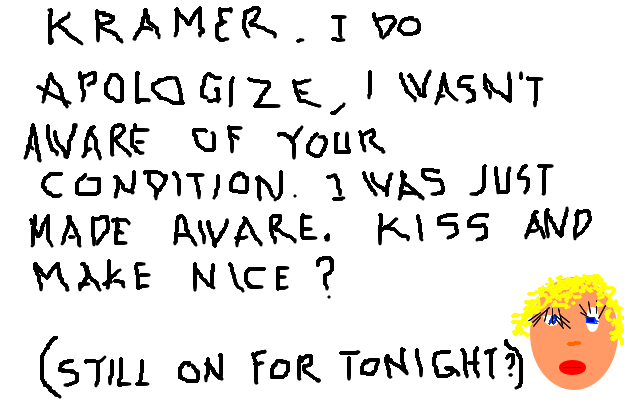 KRAMER. I DO
APOLOGIZE, I WASN'T
AWARE OF YOUR
CONDITION. I WAS JUST
MADE AWARE. KISS AND
MAKE NICE?
(STILL ON FOR TONIGHT?)